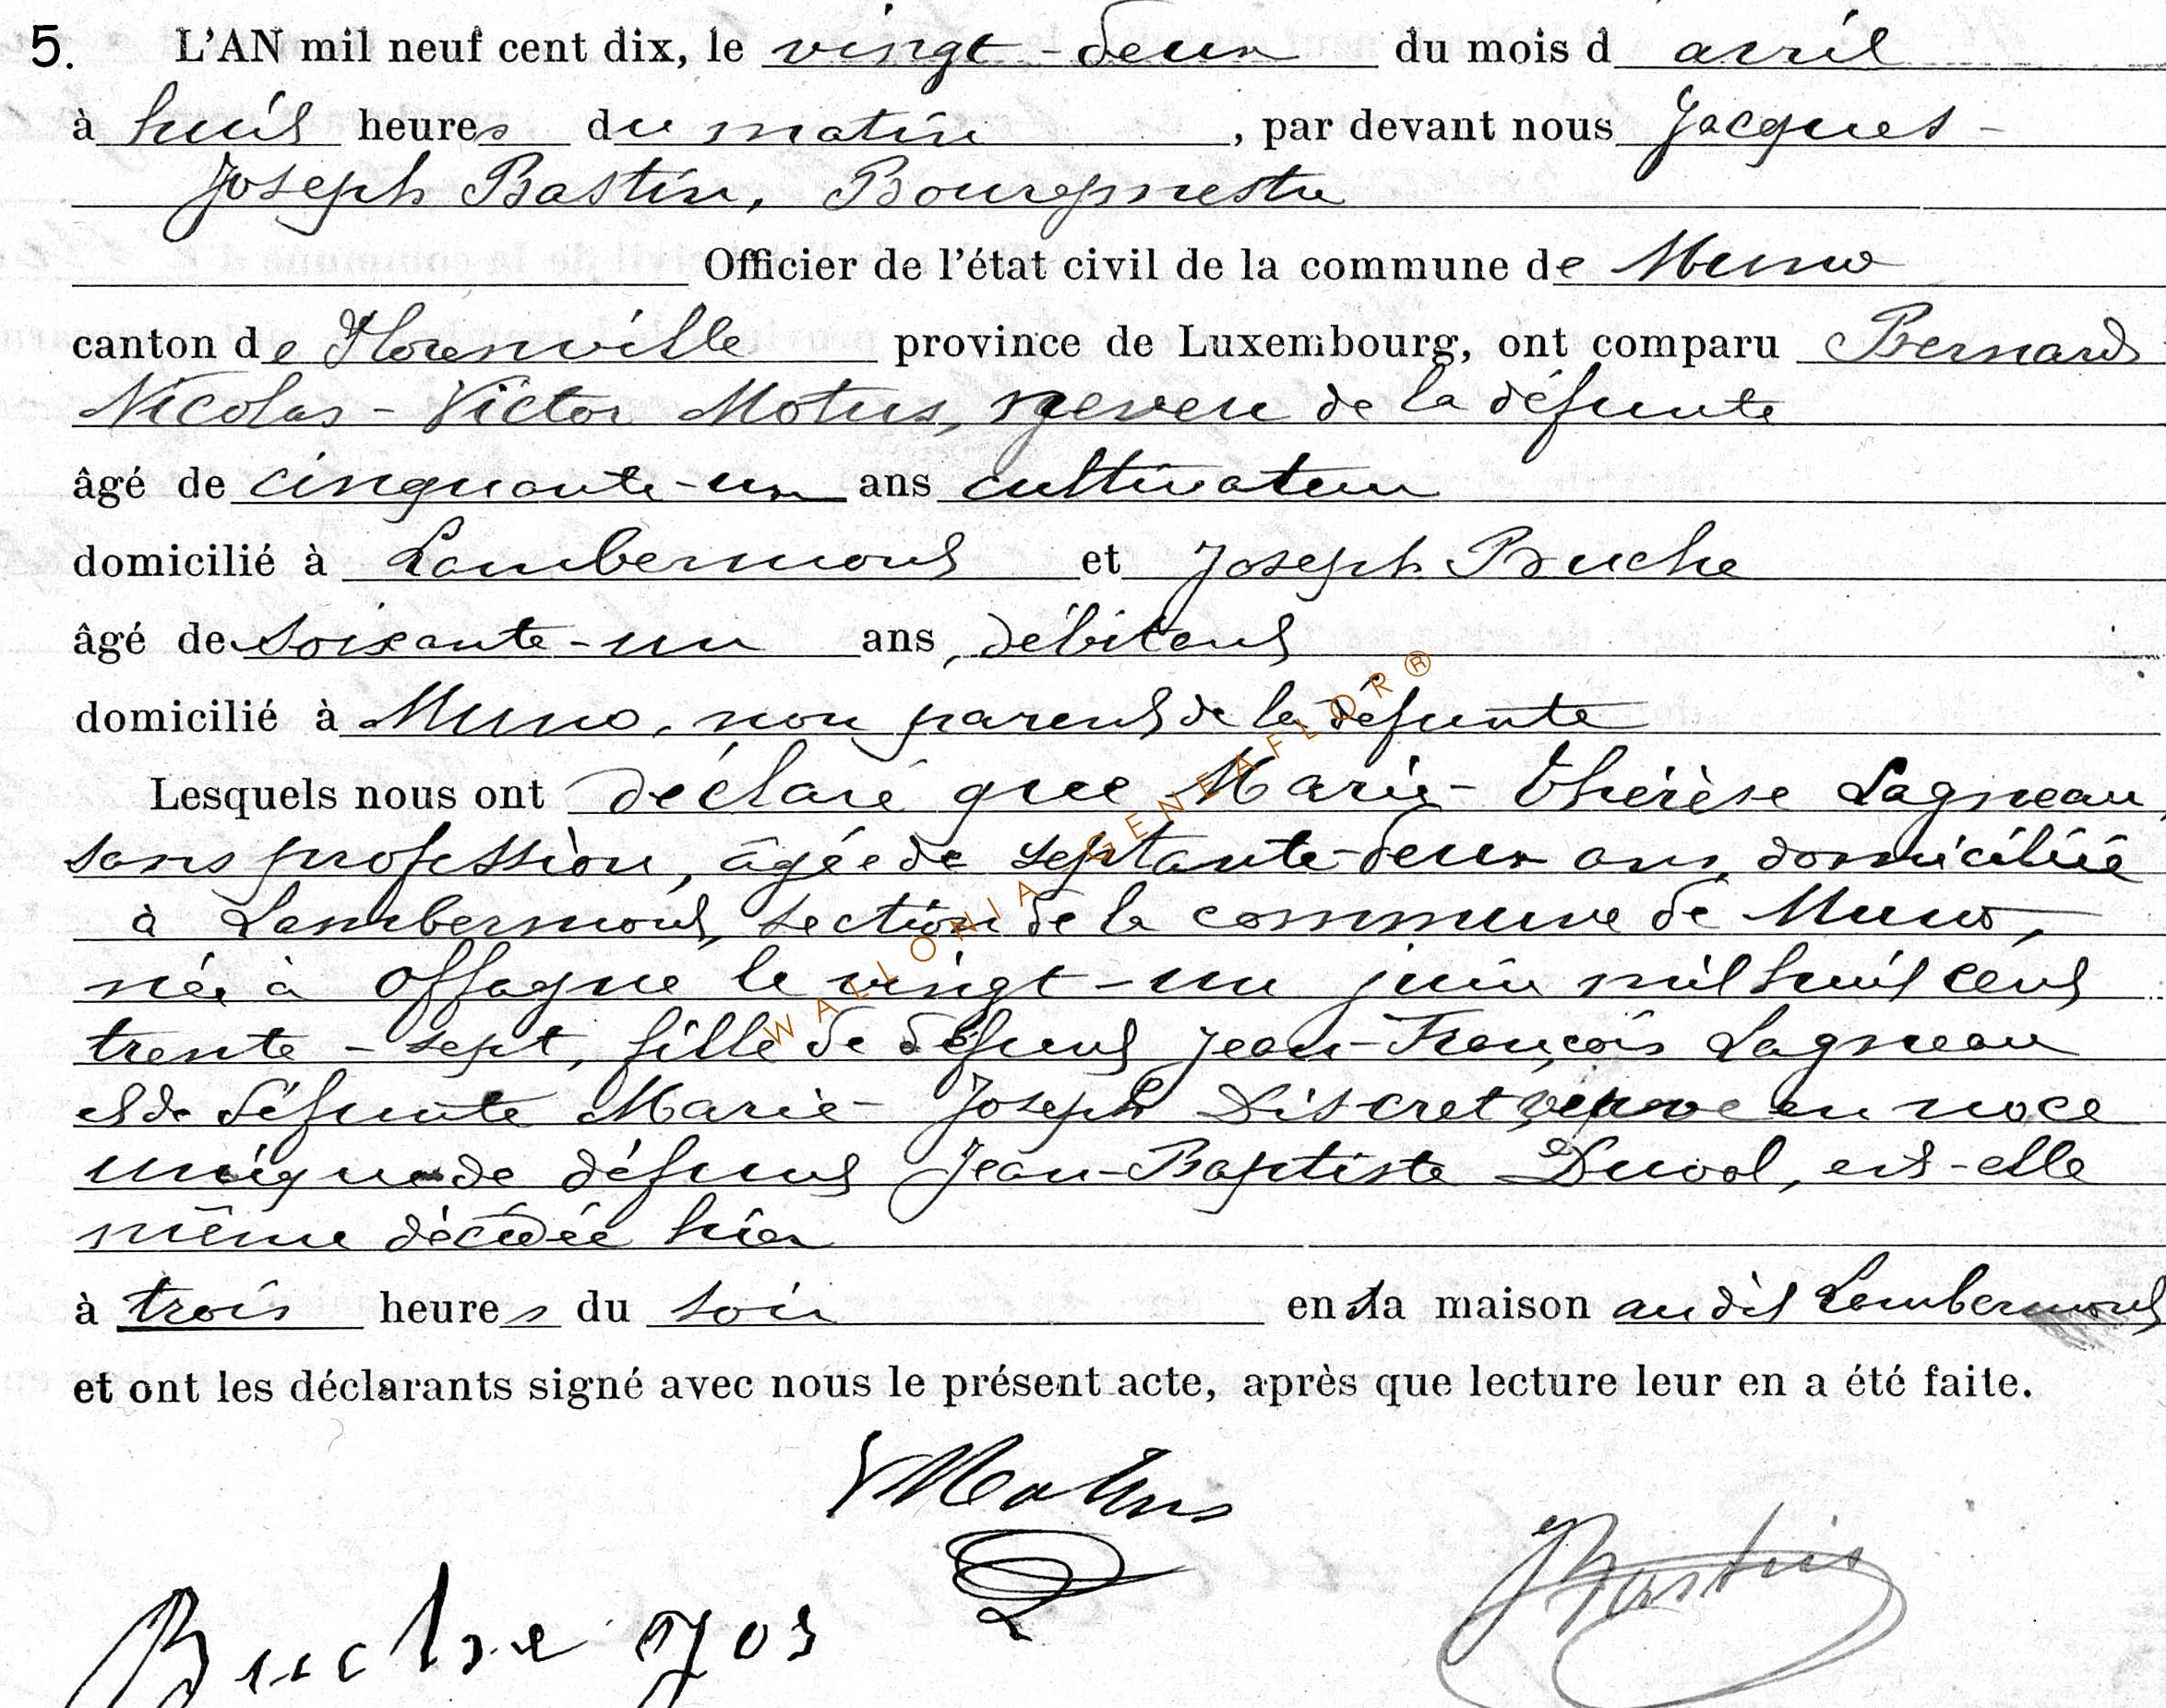 5. L'AN mil neuf cent dix, le vingt-deux du mois d avril
à huit heures du matin, par devant nous Jacques-
Joseph Bastin, Bourgmestre
Officier de l'état civil de la commune de Muno
canton de Florenville province de Luxembourg, ont comparu Bernard
Nicolas-Victor Motus, neveu de la défunte
âgé de cinquante-un ans cultivateur
domicilié à Lambermont et Joseph Buche
âgé de soixante-un ans, débitant
domicilié à Muno, non parent de la défunte
Lesquels nous ont déclaré que Marie-Thérèse Lagneau,
sans profession, âgée de septante-deux ans, domiciliée
à Lambermont, section de la commune de Muno,
née à Offagne le vingt-un juin mil huit cent
trente-sept, fille de défunt Jean-François Lagneau
et de défunte Marie-Joseph Discret, veuve en noce
unique de défunt Jean-Baptiste Duval, est-elle
même décédée hier
à trois heures du soir en sa maison audit Lambermont
et ont les déclarants signé avec nous le présent acte, après que lecture leur en a été faite.
VMotus
JBastin
Buche Jos
WALLONIA GENEAFLOR®